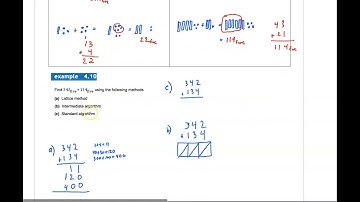 13
+ 4
22
= 22five
= 114five
43
+ 21
114five
example 4.10
Find 342five + 134five using the following methods
(a) Lattice method
(b) Intermediate algorithm
(c) Standard algorithm
a)
342
+ 134
11
120
400
c) 342
+ 134
b) 342
+ 134